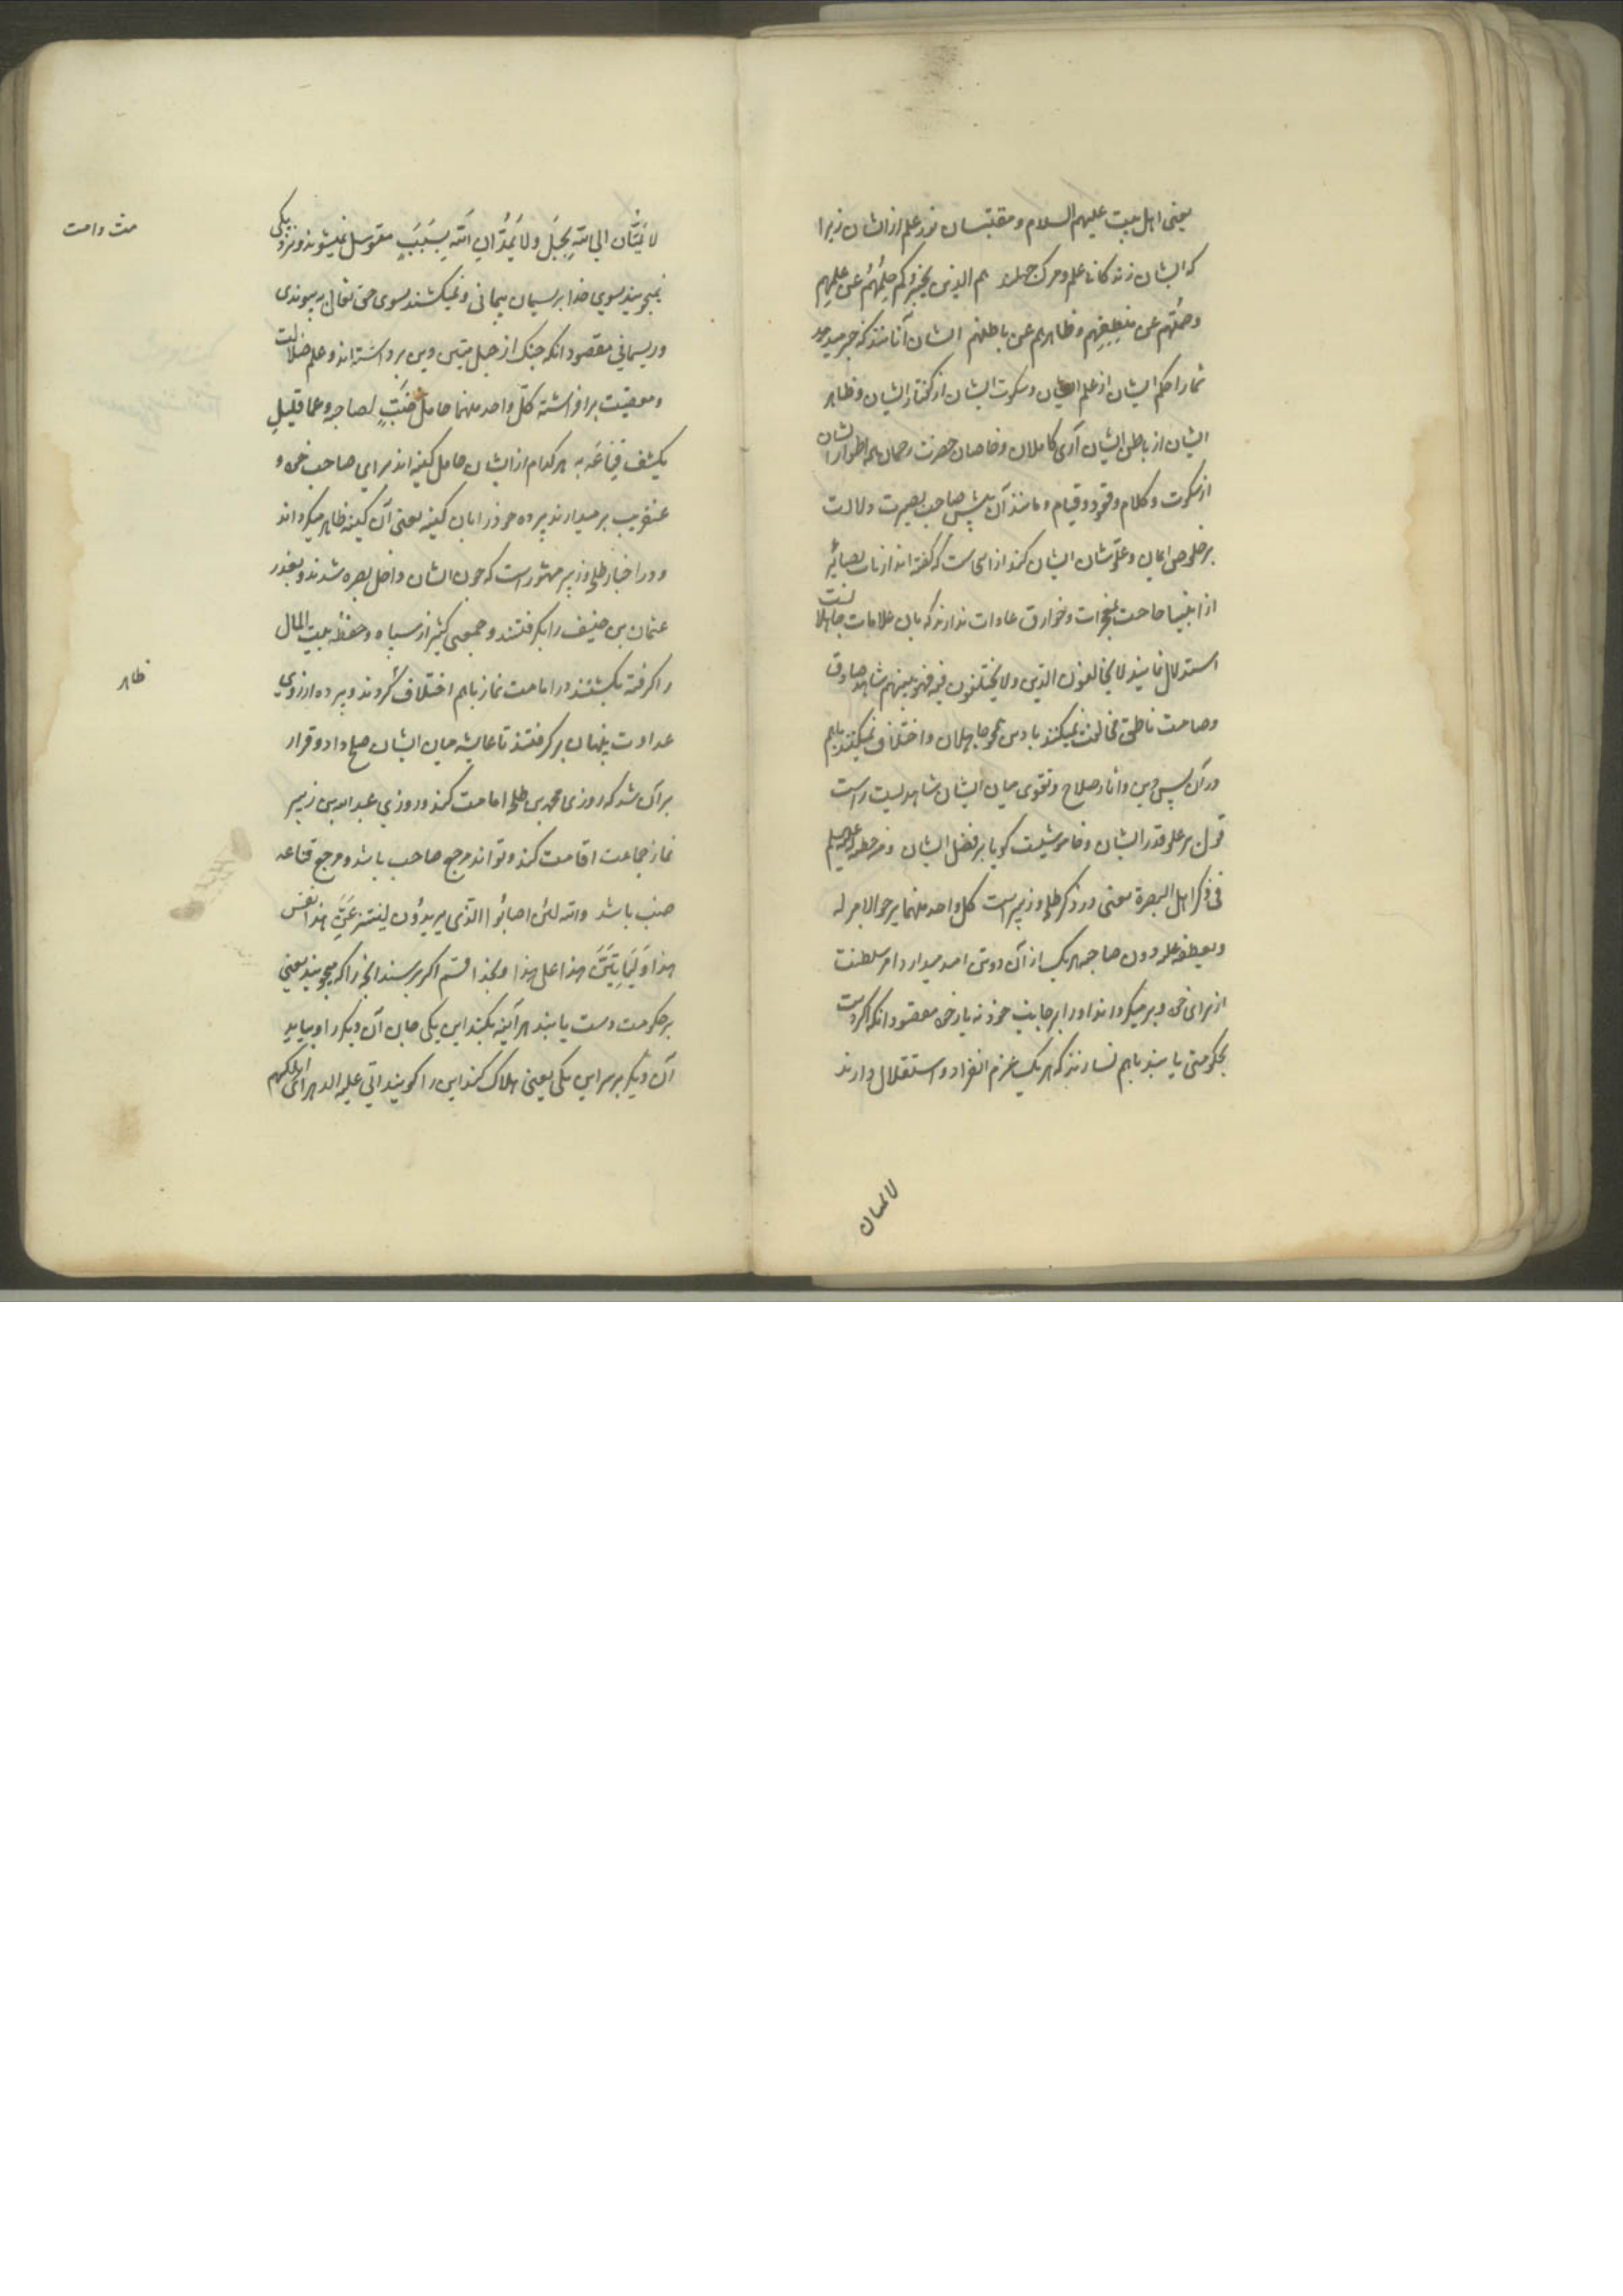 یعنی اهل بیت علیهم السلام و مقتبسان نور علم از ایشان زیرا
که ایشان زندکانی علم و مرک جهلند هم الذین یخبرکم حلمهم عن علمهم
وصمتهم عن منطقهم و ظاهرهم عن باطنهم ایشان آنانند که خبر میدهد
شما را حکم ایشان از علم ایشان و سکوت ایشان از کفتار ایشان و ظاهر
ایشان از باطن ایشان آری کاملان و خاصان حضرت رحمان همه اطوار ایشان
از سکوت و کلام و قعود و قیام و مانند آن پیش صاحب بصیرت دلالت
بر خلوص ایمان و علو شان ایشان کند از این است که کفته اند ارباب بصائر
از انبیا حاجت بمعجزات و خوارق عادات ندارند که بان علامات جاهلانست
استدلال نمایند لا یخالفون الدین ولا یختلفون فیه فهو بینهم شاهد صادق
وصامت ناطق مخالفت نمیکنند با دین همچو جاهلان و اختلاف نمیکنند باهم
در آن پس دین و آثار صلاح و تقوی میان ایشان شاهدیست راست
قول بر علو قدر ایشان و خاموشیست کویا بر فضل ایشان ومن خطبه له علیه السلم
فی ذکر اهل البصرة یعنی در ذکر طلحه و زبیر است کل واحد منهما یرجو الامر له
ویعطفه علیه دون صاحبه هریک از آن دو تن امید میدارد امر سلطنت
از برای خود و بر میکرداند او را بجانب خود نه یار خود مقصود انکه اکر دست
بحکومتی یابند باهم نسازند که هریک عزم انفراد و استقلال دارند
لا یمتان
لا یمتان الی الله بحبل ولا یمدان الیه بسبب متوسل نمیشوند و نزدیکی
نمیجویند بسوی خدا بریسمان پیمانی و نمیکشند بسوی حق تعالی پیوندی
و ریسمانی مقصود انکه چنک از حبل متین دین برداشته اند و علم ضلالت
و معصیت برافراشته کل واحد منهما حامل ضب لصاحبه و عما قلیل
یکشف قناعه به هرکدام از ایشان حامل کینه اند برای صاحب خود و
عنقریب برمیدارند پرده خود را بان کینه یعنی آن کینه ظاهر میکرداند
و در اخبار طلحه و زبیر مشهور است که چون ایشان داخل بصره شدند و بغدر
عثمان بن حنیف را بکرفتند و جمعی کثیر از سپاه و حفظه بیت المال
را کرفته بکشتند در امامت نماز باهم اختلاف کردند و پرده از روی
عداوت پنهان برکرفتند تا عایشه میان ایشان صلح داد و قرار
بر آن شد که روزی محمد بن طلحه امامت کند و روزی عبد الله بن زبیر
نماز جماعت اقامت کند و تواند مرجع صاحب باشد و مرجع قناعه
ضب باشد والله لئن اصابوا الذی یریدون لینتزعن هذا نفس
هذا ولیاتین هذا علی هذا و بخدا قسم اکر برسند انچه را که میجویند یعنی
بر حکومت دست یابند هرآینه بکند این یکی جان آن دیکر را و بیاید
آن دیکر بر سر این یکی یعنی هلاک کند این را کویند اتی علیه الدهر ای اهلکهم
ظاهر